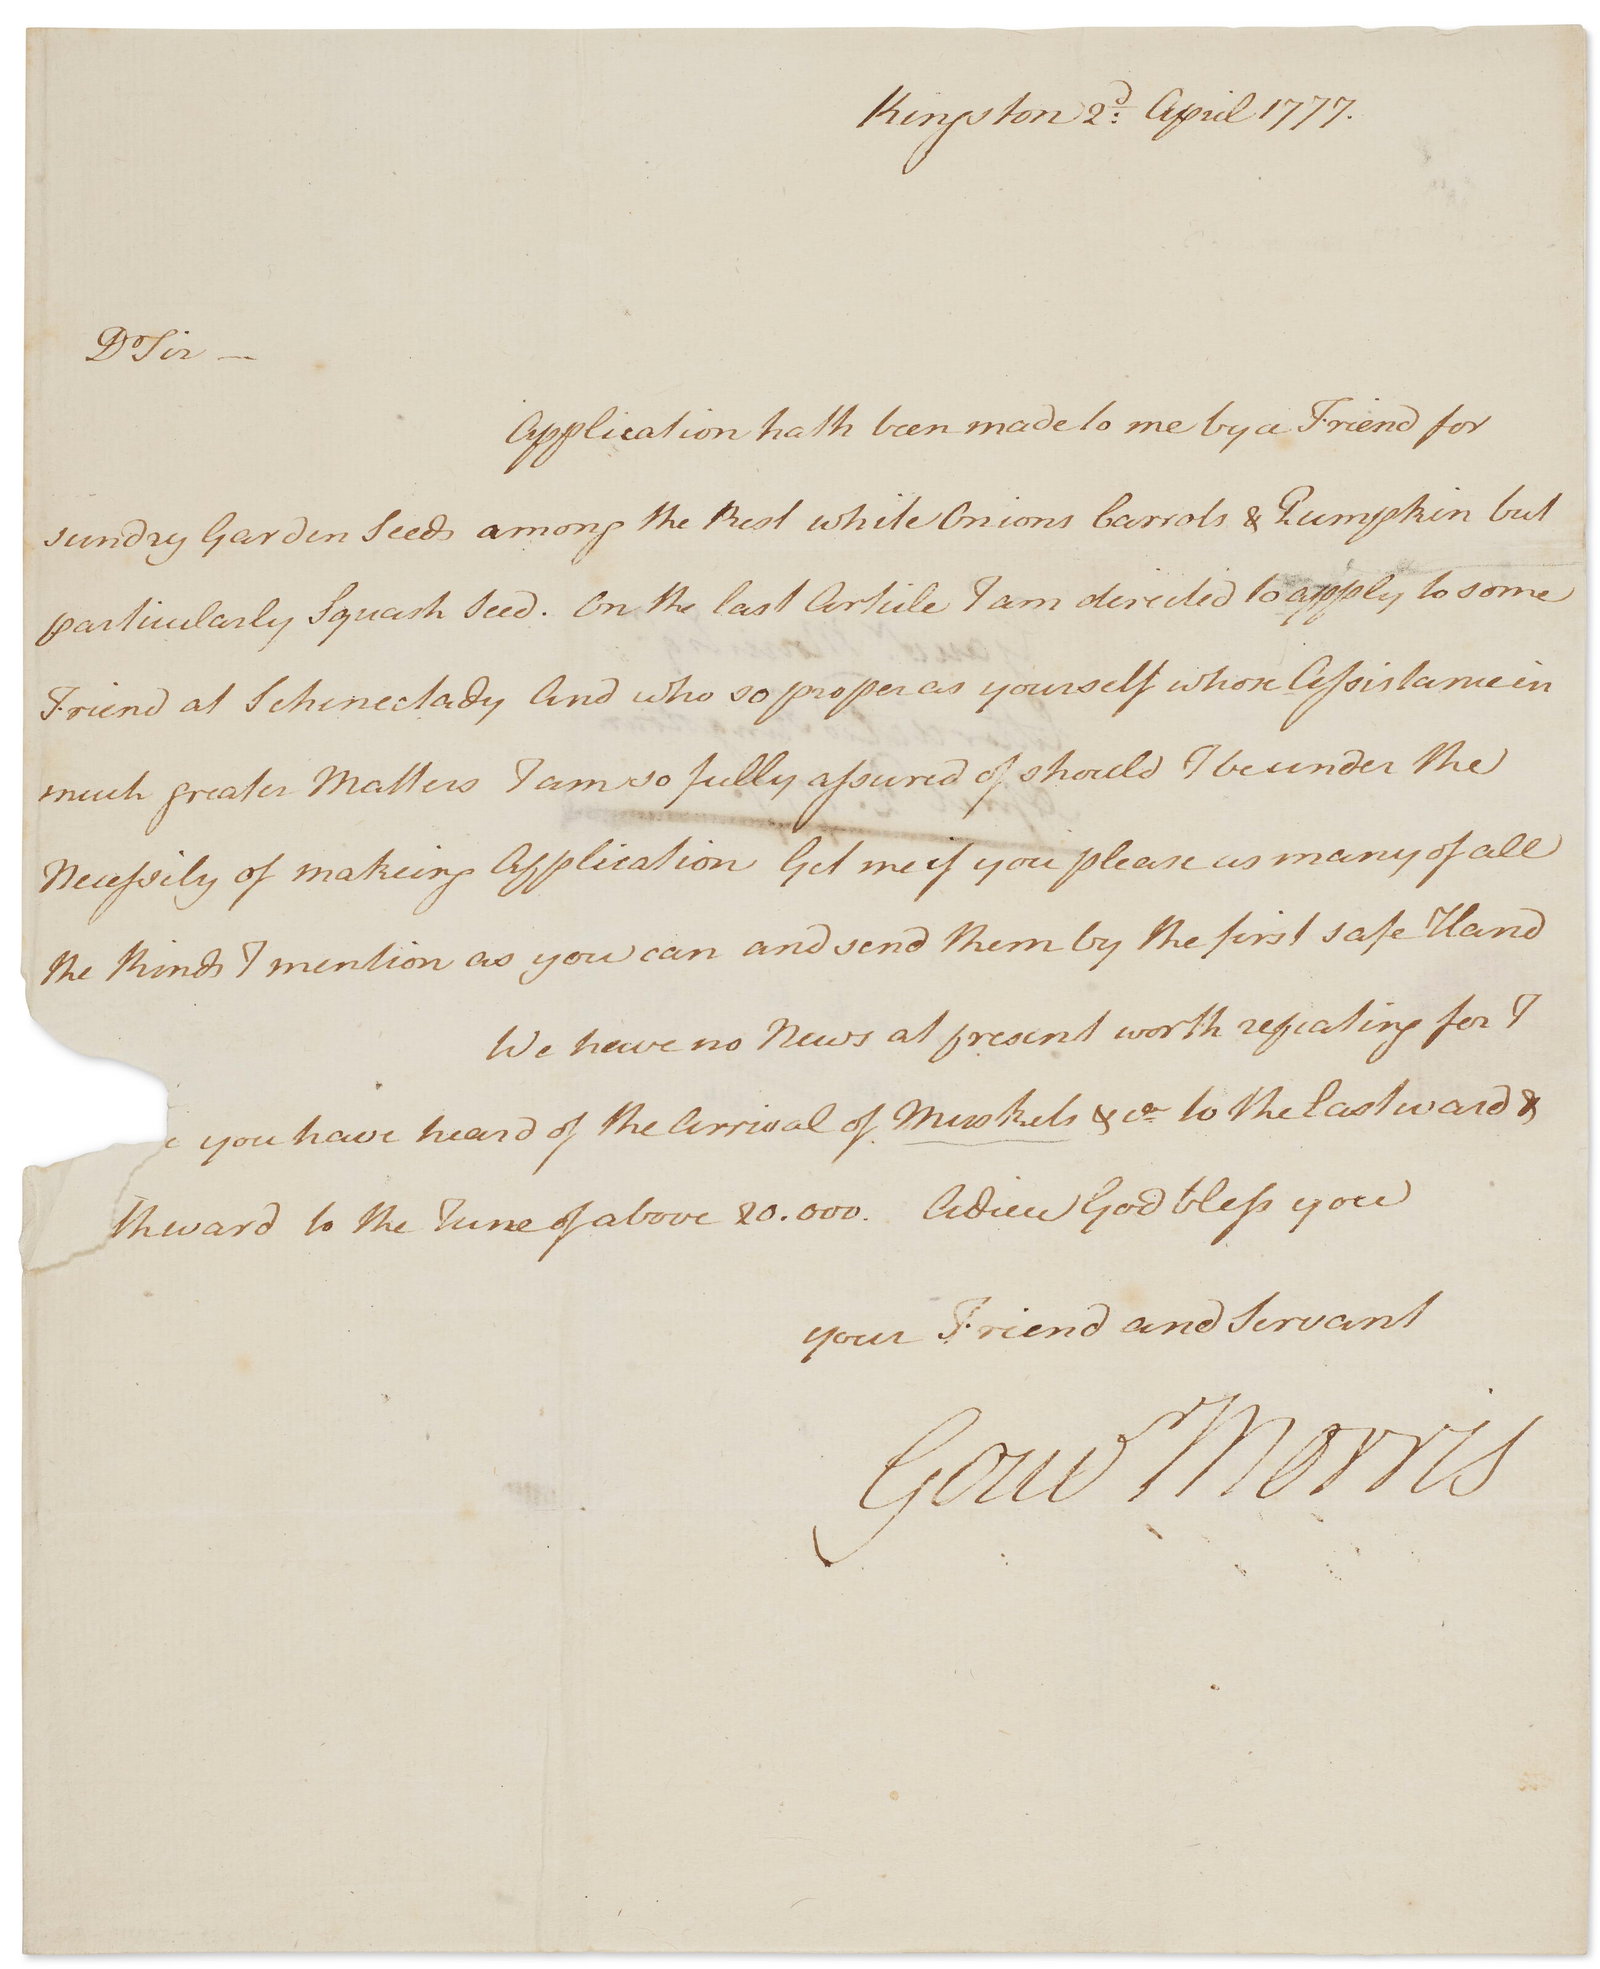 Kingston 2d: April 1777.
Dr Sir —
Application hath been made to me by a Friend for
sundry Garden Seeds among the Rest white Onions Carrots & Pumpkin but
particularly Squash Seed. On the last Article I am directed to apply to some
Friend at Schenectady And who so proper as yourself whose Assistance in
much greater Matters I am so fully assured of should I be under the
Necessity of making Application Get me if you please as many of all
the Kinds I mention as you can and send them by the first safe Hand
We have no News at present worth repeating for I
you have heard of the Arrival of Muskets &ca to the Eastward &
thward to the Tune of above 20.000. Adieu God bless you
your Friend and Servant
Gouvr Morris